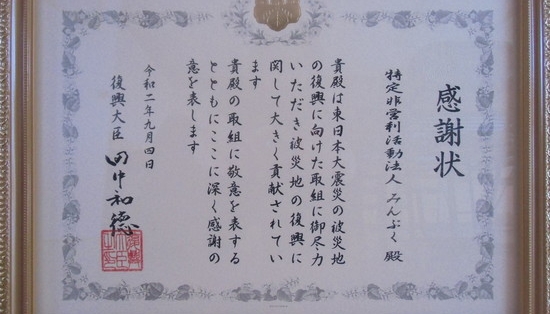 感謝状
特定非営利活動法人 みんぷく 殿
貴殿は東日本大震災の被災地
の復興に向けた取組に御尽力
いただき被災地の復興に
関して大きく貢献されてい
ます
貴殿の取組に敬意を表する
とともにここに深く感謝の
意を表します
令和二年九月四日
復興大臣 田中和德